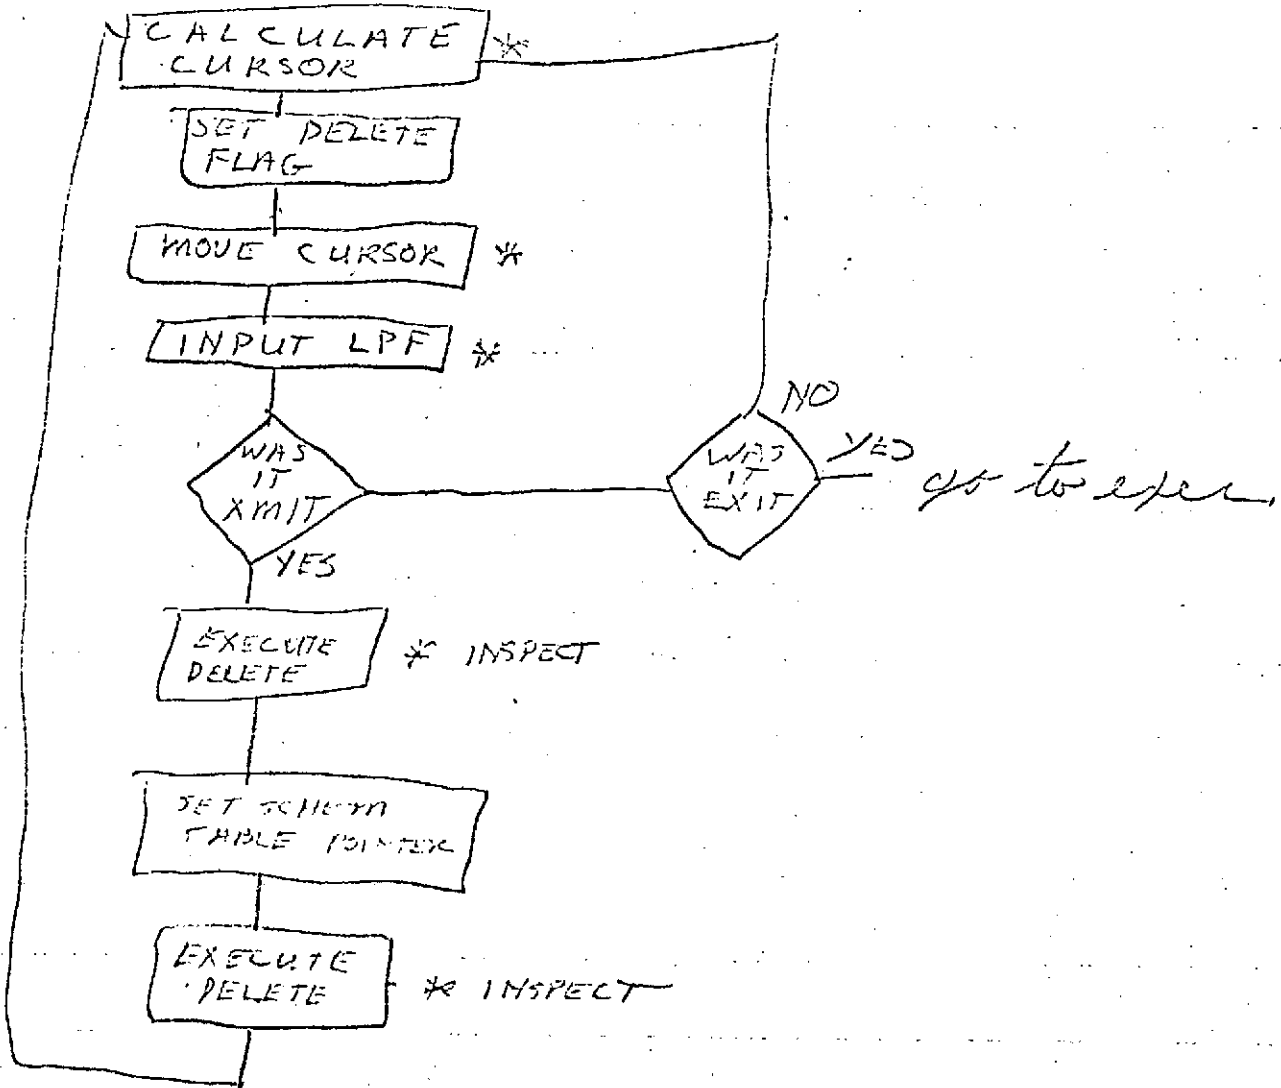 CALCULATE
CURSOR *
SET DELETE
FLAG
MOVE CURSOR *
INPUT LPF *
WAS
IT
XMIT
YES
NO
WAS
IT
EXIT
YES
go to exec.
EXECUTE
DELETE
* INSPECT
SET SCHEMA
TABLE POINTER
EXECUTE
DELETE
* INSPECT